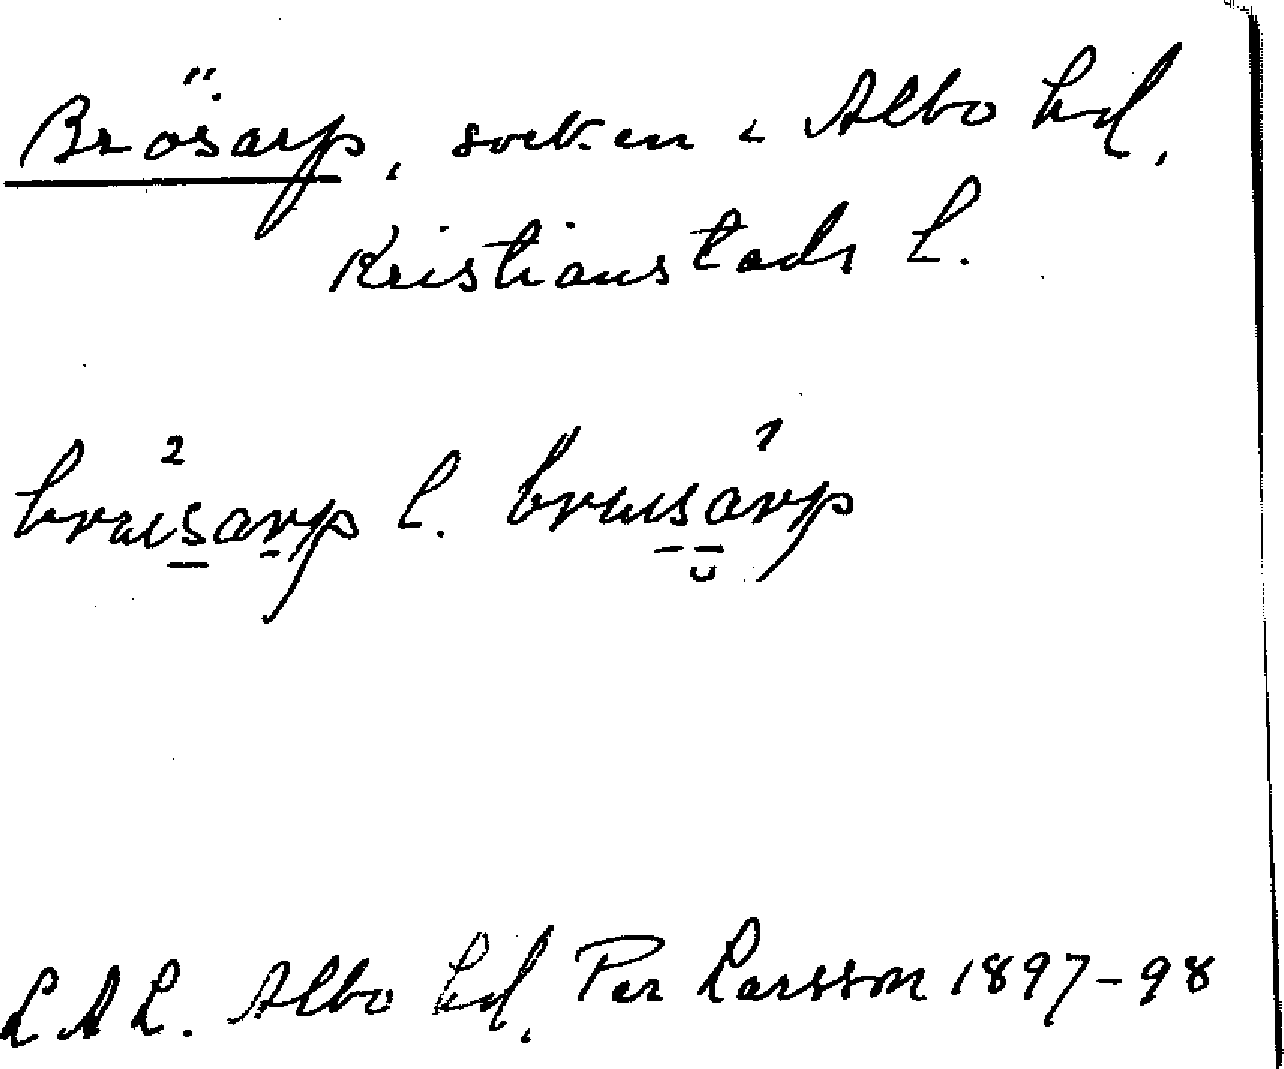 Brösarp, socken i Albo hd,
Kristianstads l.
bræisarp l. bræisarp
L A L. Albo hd, Per Larsson 1897-98